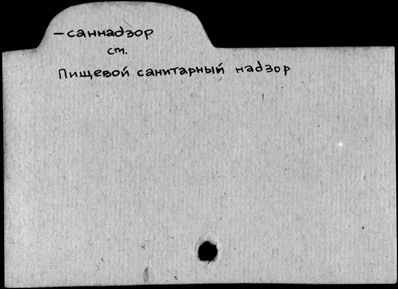 — саннадзор
ст.
Пищевой санитарный надзор